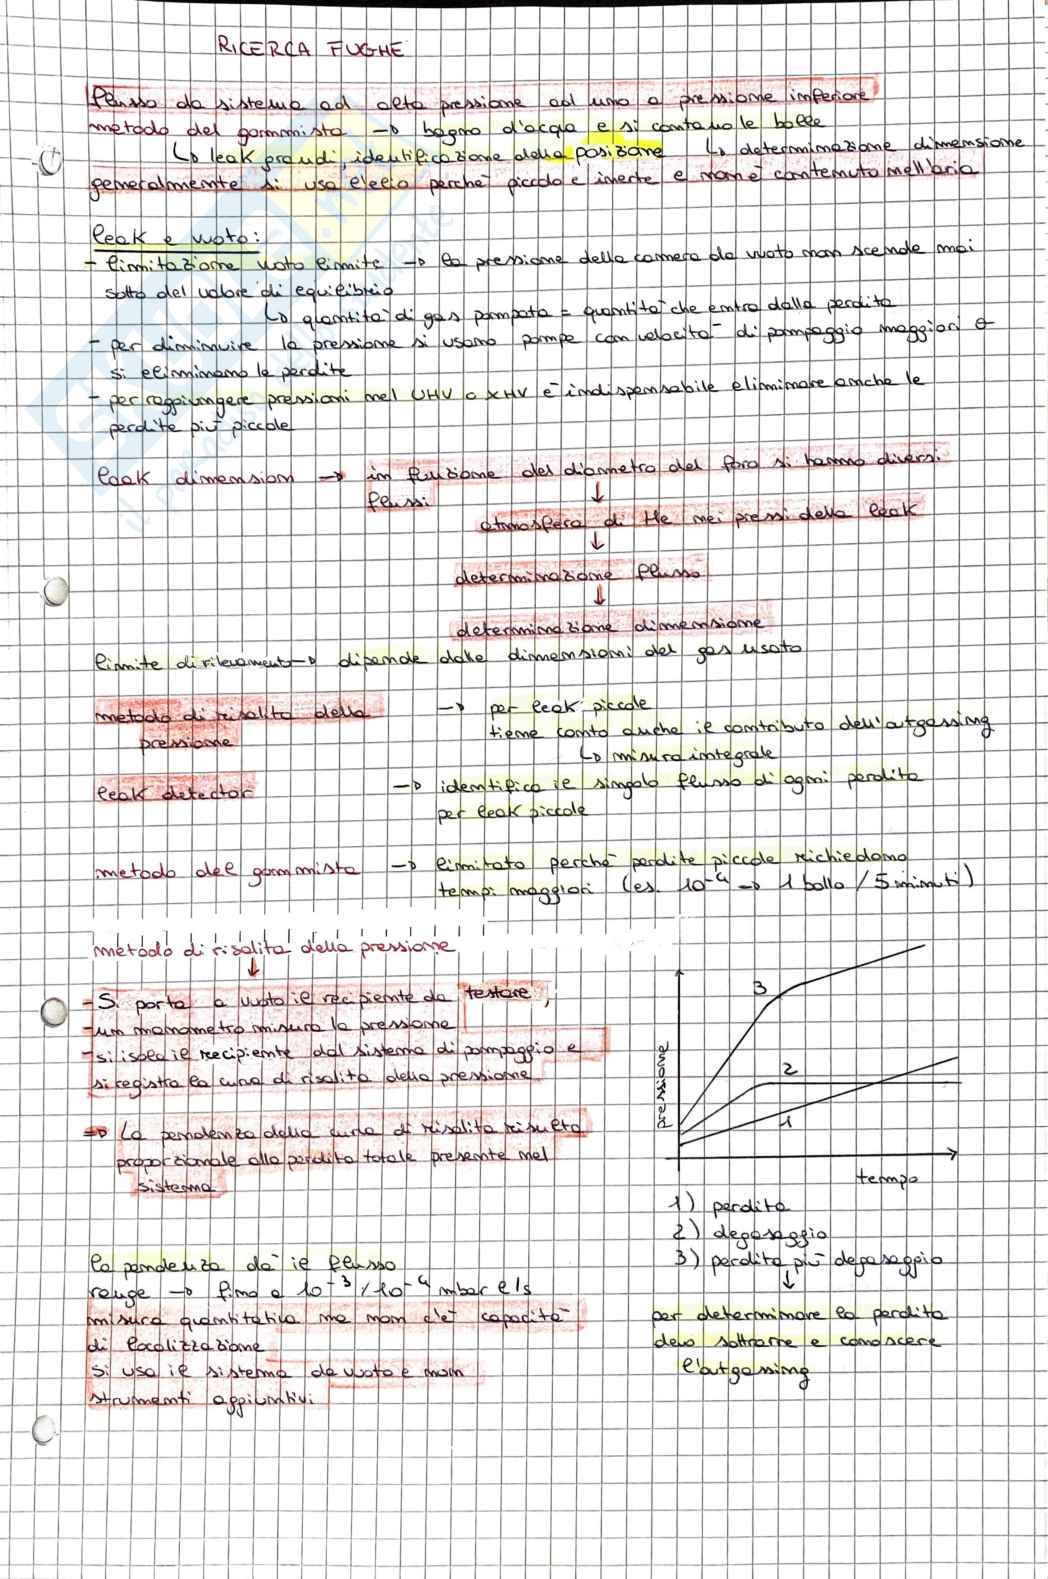 RICERCA FUGHE
flusso da sistema ad alta pressione ad uno a pressione inferiore
metodo del gommista → bagno d'acqua e si contano le bolle
↳ leak grandi, identificazione della posizione ↳ determinazione dimensione
generalmente si usa elio perché piccolo e inerte e non è contenuto nell'aria
leak e vuoto:
- limitazione vuoto limite → la pressione della camera da vuoto non scende mai
sotto del valore di equilibrio
↳ quantità di gas pompata = quantità che entra dalla perdita
- per diminuire la pressione si usano pompe con velocità di pompaggio maggiori o
si eliminano le perdite
- per raggiungere pressioni nel UHV o XHV è indispensabile eliminare anche le
perdite più piccole
leak dimension → in funzione del diametro del foro si hanno diversi
flussi ↓
atmosfera di He nei pressi della leak
↓
determinazione flusso
↓
determinazione dimensione
limite di rilevamento → dipende dalle dimensioni del gas usato
metodo di risalita della → per leak piccole
pressione tiene conto anche il contributo dell'outgassing
↳ misura integrale
leak detector → identifica il singolo flusso di ogni perdita
per leak piccole
metodo del gommista → limitato perché perdite piccole richiedono
tempi maggiori (es. 10⁻⁴ → 1 bolla / 5 minuti)
metodo di risalita della pressione
↓
- Si porta a vuoto il recipiente da testare,
- un manometro misura la pressione
- si isola il recipiente dal sistema di pompaggio e
si registra la curva di risalita della pressione
⇒ La pendenza della curva di risalita risulta
proporzionale alla perdita totale presente nel
sistema
pressione
3
2
1
tempo
1) perdita
2) degasaggio
3) perdita più degasaggio
↓
per determinare la perdita
devo sottrarre e conoscere
l'outgassing
la pendenza dà il flusso
range → fino a 10⁻³/10⁻⁴ mbar l/s
misura quantitativa ma non c'è capacità
di localizzazione
si usa il sistema da vuoto e non
strumenti aggiuntivi